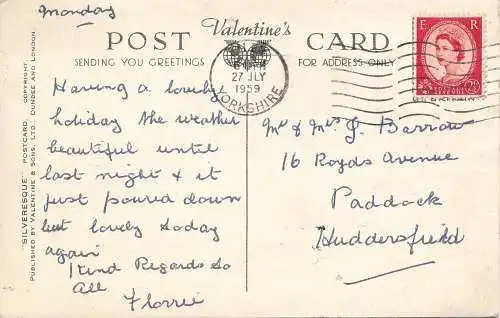 Monday
Valentine's
POST CARD
SENDING YOU GREETINGS
FOR ADDRESS ONLY
27 JLY
1959
YORKSHIRE
E R
"SILVERESQUE" POSTCARD. COPYRIGHT.
PUBLISHED BY VALENTINE & SONS, LTD., DUNDEE AND LONDON.
Having a lovely
holiday the weather
beautiful until
last night & it
just poured down
but lovely today
again
Kind Regards to
All
Florrie
Mr & Mrs J. Barrow
16 Royds Avenue
Paddock
Huddersfield